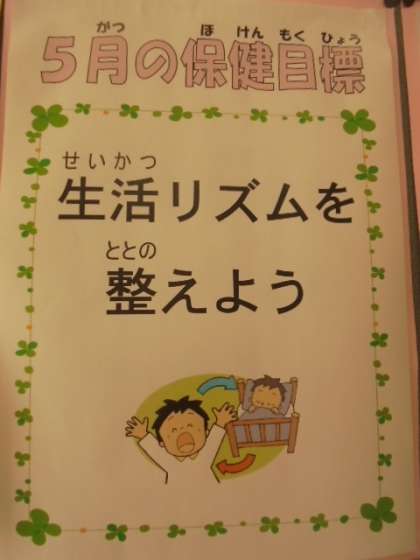 がつ ほ けん もく ひょう
5月の保健目標
せいかつ
生活リズムを
ととの
整えよう